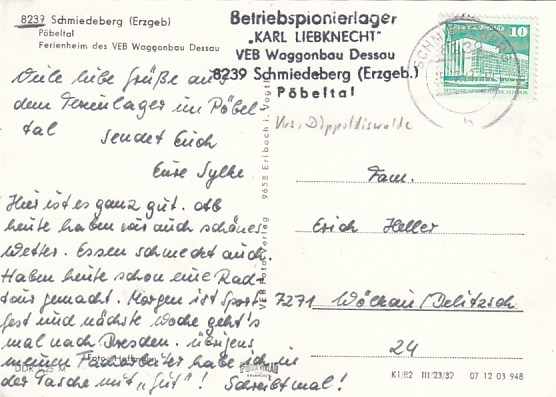 8239 Schmiedeberg (Erzgeb)
Pöbeltal
Ferienheim des VEB Waggonbau Dessau
Betriebspionierlager
„KARL LIEBKNECHT"
VEB Waggonbau Dessau
8239 Schmiedeberg (Erzgeb.)
Pöbeltal
10
Viele liebe Grüße aus
dem Ferienlager im Pöbel-
tal
sendet Euch
Eure Sylke.
Hier ist es ganz gut. Ab
heute haben wir auch schönes
Wetter. Essen schmeckt auch.
Haben heute schon eine Rad-
tour gemacht. Morgen ist Sport-
fest und nächste Woche geht's
mal nach Dresden. Übrigens
meinen Facharbeiter habe ich in
der Tasche mit „gut"! Schreibt mal!
Krs. Dippoldiswalde
Fam.
Erich Heller
7271 Wölkau/Delitzsch
24
VEB Foto-Verlag 9658 Erlbach i. Vogtl.
Foto:
DDR 0,25 M
K1/82 III/23/82 07 12 03 948